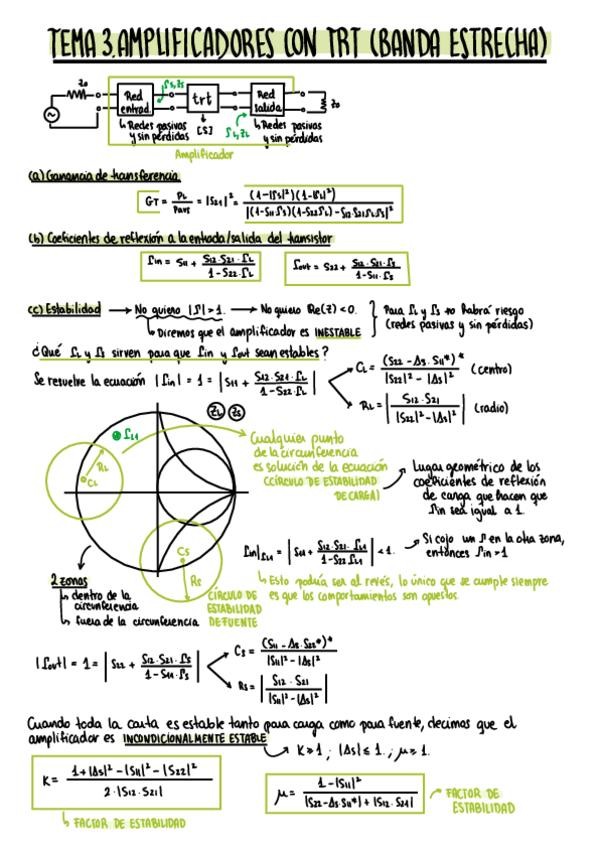 TEMA 3. AMPLIFICADORES CON TRT (BANDA ESTRECHA)
Zo
Red entrad.
Γs, Zs
trt
[S]
Red salida
ΓL, ZL
Zo
↳ Redes pasivas
y sin pérdidas
↳ Redes pasivas
y sin pérdidas
Amplificador
(a) Ganancia de transferencia
GT = PL / Pavs = |S21|² = (1-|Γs|²)(1-|ΓL|²) / |(1-S11 Γs)(1-S22 ΓL) - S12·S21 ΓL Γs|²
(b) Coeficientes de reflexión a la entrada/salida del transistor
Γin = S11 + S12·S21·ΓL / 1-S22·ΓL
Γout = S22 + S12·S21·Γs / 1-S11·Γs
(c) Estabilidad → No quiero |Γ|>1. → No quiero Re(Z) < 0. } Para ΓL y Γs no habrá riesgo
(redes pasivas y sin pérdidas)
↳ Diremos que el amplificador es INESTABLE
¿Qué ΓL y Γs sirven para que Γin y Γout sean estables?
Se resuelve la ecuación |Γin| = 1 = |S11 + S12·S21·ΓL / 1-S22·ΓL|
CL = (S22 - Δs·S11*)* / |S22|² - |Δs|² (centro)
RL = |S12·S21 / |S22|² - |Δs|²| (radio)
ZL Zs
ΓL1
RL
CL
Cualquier punto
de la circunferencia
es solución de la ecuación
(CÍRCULO DE ESTABILIDAD
DE CARGA)
→ Lugar geométrico de los
coeficientes de reflexión
de carga que hacen que
Γin sea igual a 1.
Cs
Rs
CÍRCULO DE
ESTABILIDAD
DE FUENTE
Γin|ΓL1 = |S11 + S12·S21·ΓL1 / 1-S22·ΓL1| < 1.
→ Si cojo un Γ en la otra zona,
entonces Γin > 1
↳ Esto podría ser al revés, lo único que se cumple siempre
es que los comportamientos son opuestos.
2 zonas
↳ dentro de la
circunferencia
↳ fuera de la circunferencia
|Γout| = 1 = |S22 + S12·S21·Γs / 1-S11·Γs|
Cs = (S11 - Δs·S22*)* / |S11|² - |Δs|²
Rs = |S12·S21 / |S11|² - |Δs|²|
Cuando toda la carta es estable tanto para carga como para fuente, decimos que el
amplificador es INCONDICIONALMENTE ESTABLE
→ K≥1 ; |Δs|≤1. ; μ≥1.
K = 1+|Δs|² - |S11|² - |S22|² / 2·|S12·S21|
↳ FACTOR DE ESTABILIDAD
μ = 1-|S11|² / |S22-Δs·S11*| + |S12·S21|
→ FACTOR DE
ESTABILIDAD